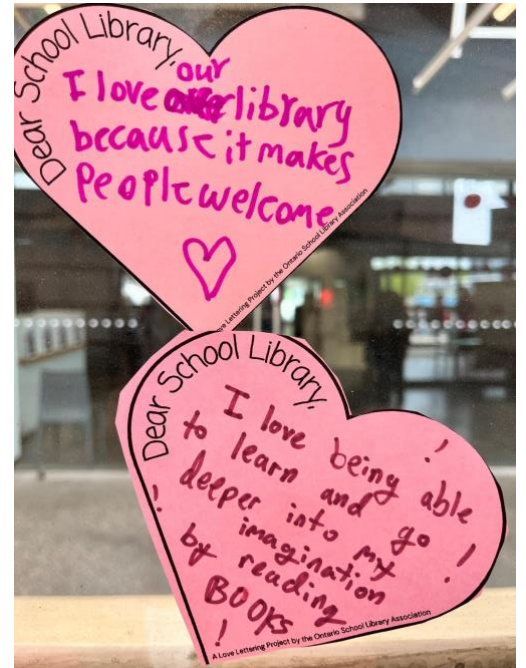 Dear School Library,
our
I love library
because it makes
People welcome
A Love Lettering Project by the Ontario School Library Association
Dear School Library,
I love being able
to learn and go
deeper into my
imagination
by reading
BOOKS
!
!
!
!
A Love Lettering Project by the Ontario School Library Association